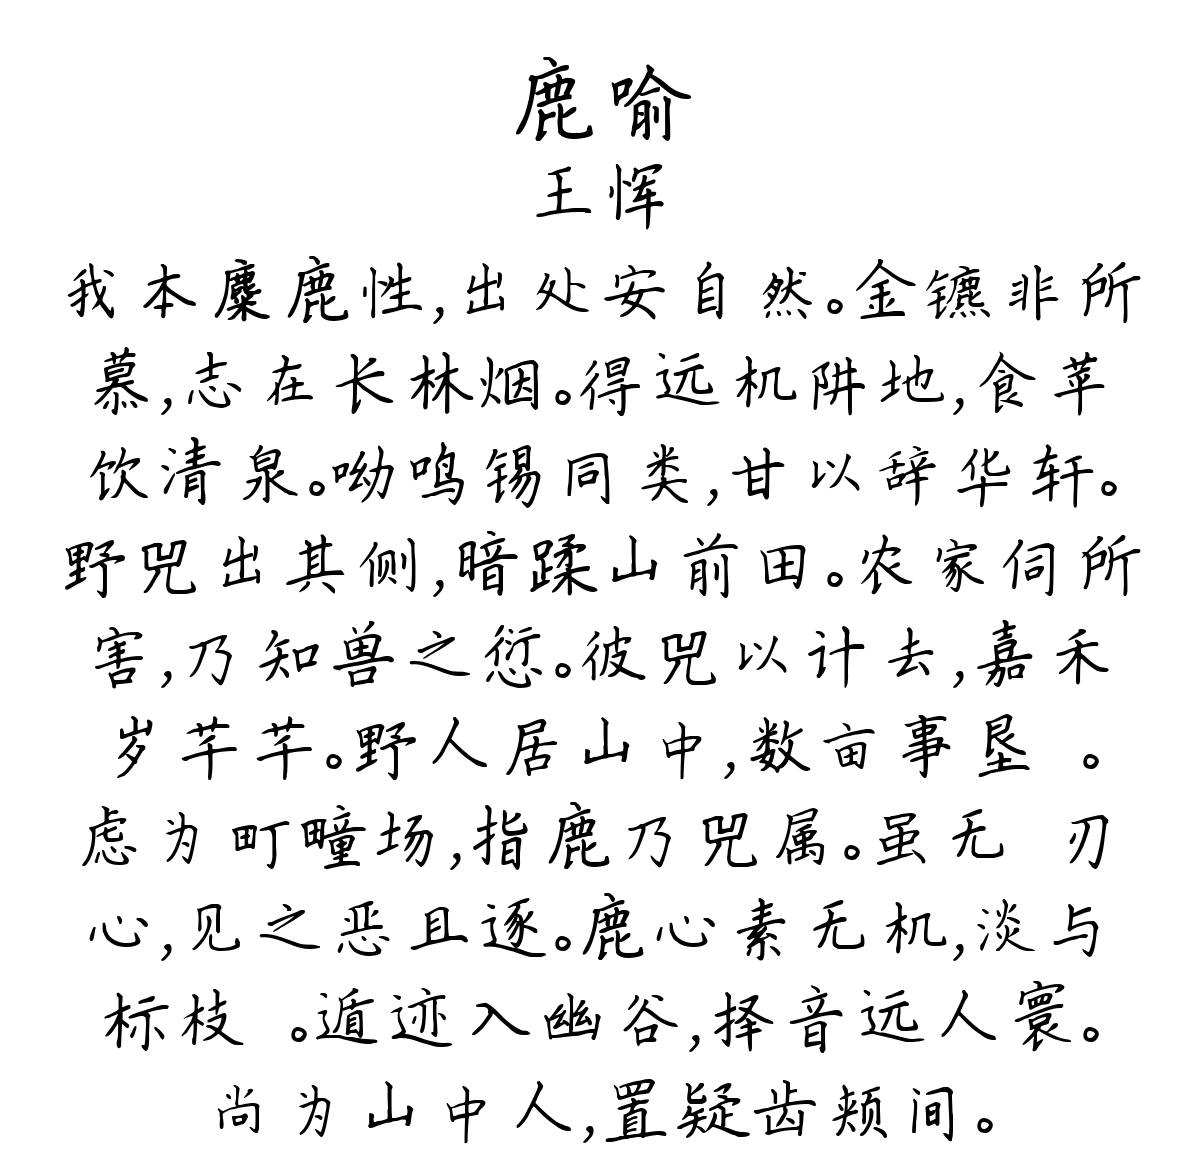 鹿喻
王恽
我本麋鹿性,出处安自然。金镳非所
慕,志在长林烟。得远机阱地,食苹
饮清泉。呦鸣锡同类,甘以辞华轩。
野兕出其侧,暗蹂山前田。农家伺所
害,乃知兽之愆。彼兕以计去,嘉禾
岁芊芊。野人居山中,数亩事垦 。
虑为町疃场,指鹿乃兕属。虽无 刃
心,见之恶且逐。鹿心素无机,淡与
标枝 。遁迹入幽谷,择音远人寰。
尚为山中人,置疑齿颊间。